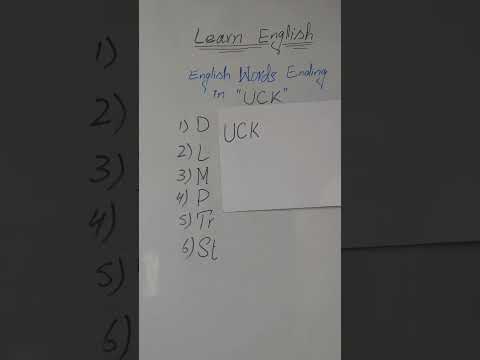 Learn English
English Words Ending
in "UCK"
1) D UCK
2) L
3) M
4) P
5) Tr
6) St
1)
2)
3)
4)
5)
6)